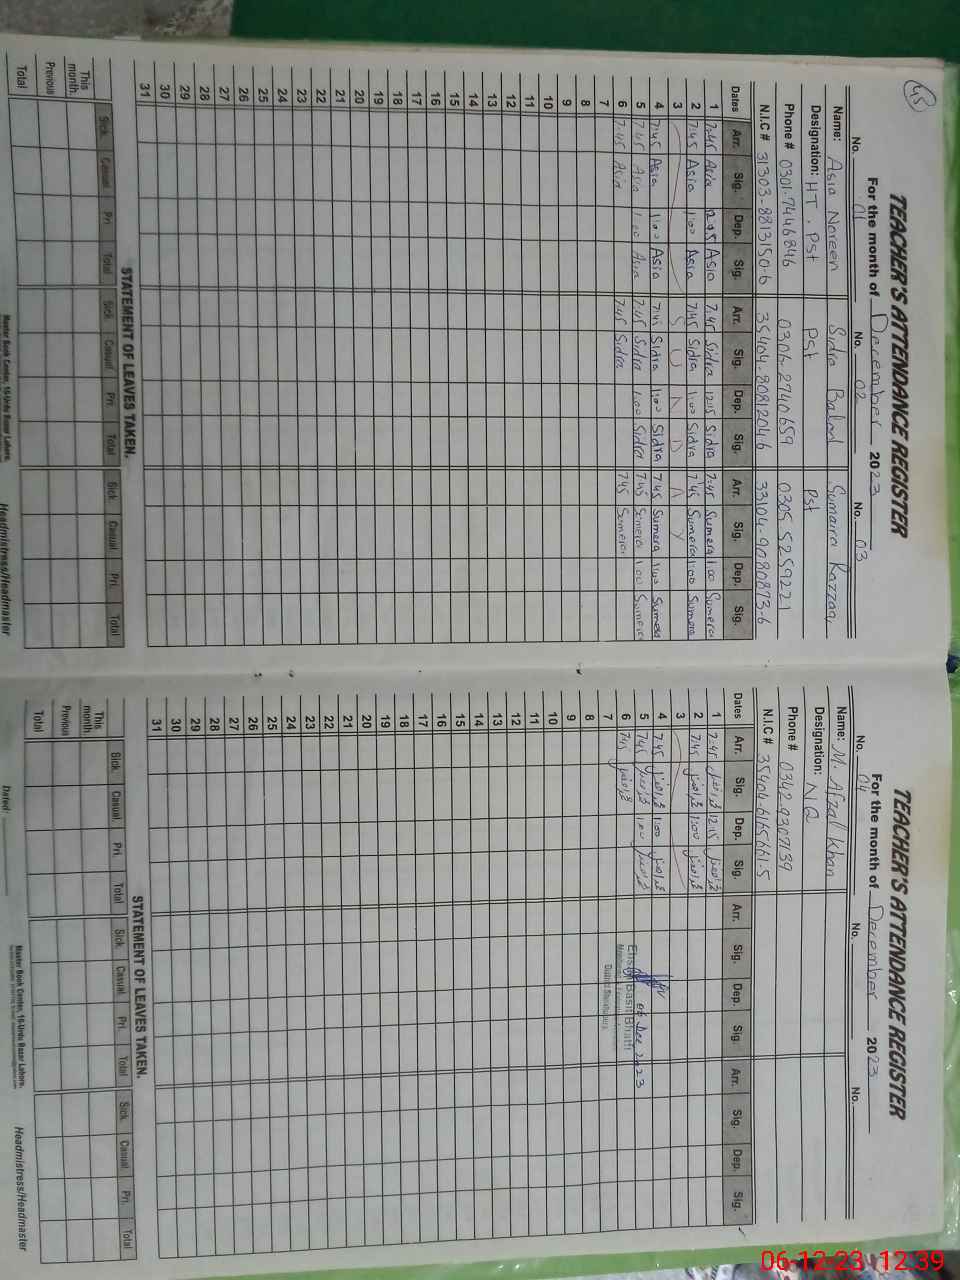 45
TEACHER'S ATTENDANCE REGISTER
For the month of December 2023
No. 01 No. 02 No. 03
Name: Asia Noreen Sidra Sumaira Razzaq
Designation: HT. Pst Pst Pst
Phone # 0301-7446846 0306-2740659 0305 5259221
N.I.C # 31303-8813150-6 35404-8081204-6 33104-9080873-6
Dates Arr. Sig. Dep. Sig. Arr. Sig. Dep. Sig. Arr. Sig. Dep. Sig.
1 7:45 Asia 12:05 Asia 7:45 Sidra 12:05 Sidra 7:45 Sumera 1:00 Sumera
2 7:45 Asia 1:00 Asia 7:45 Sidra 1:00 Sidra 7:45 Sumera 1:00 Sumera
3 S U N D A Y
4 7:45 Asia 1:00 Asia 7:45 Sidra 1:00 Sidra 7:45 Sumera 1:00 Sumera
5 7:45 Asia 1:00 Asia 7:45 Sidra 1:00 Sidra 7:45 Sumera 1:00 Sumera
6 7:45 Asia 7:45 Sidra 7:45 Sumera
7
8
9
10
11
12
13
14
15
16
17
18
19
20
21
22
23
24
25
26
27
28
29
30
31
STATEMENT OF LEAVES TAKEN.
Sick. Casual Pri. Total Sick Casual. Pri. Total Sick Casual. Pri. Total
This month.
Previous
Total
Master Book Center, 16-Urdu Bazar Lahore.
Headmistress/Headmaster
TEACHER'S ATTENDANCE REGISTER
For the month of December 2023
No. 04 No. No.
Name: M. Afzal Khan
Designation: N Q
Phone # 0342-9307139
N.I.C # 35404-6165661-5
Dates Arr. Sig. Dep. Sig. Arr. Sig. Dep. Sig. Arr. Sig. Dep. Sig.
1 7:45 12:15
2 7:45 1:00
3
4 7:45 1:00
5 7:45 1:00 06 Dec 2023
6 7:45 Basit Bhatti
7
8
9
10
11
12
13
14
15
16
17
18
19
20
21
22
23
24
25
26
27
28
29
30
31
STATEMENT OF LEAVES TAKEN.
Sick. Casual. Pri. Total Sick. Casual. Pri. Total Sick. Casual. Pri. Total
This month.
Previous
Total
Dated:
Master Book Center, 16-Urdu Bazar Lahore.
Headmistress/Headmaster
06-12-23 12:39